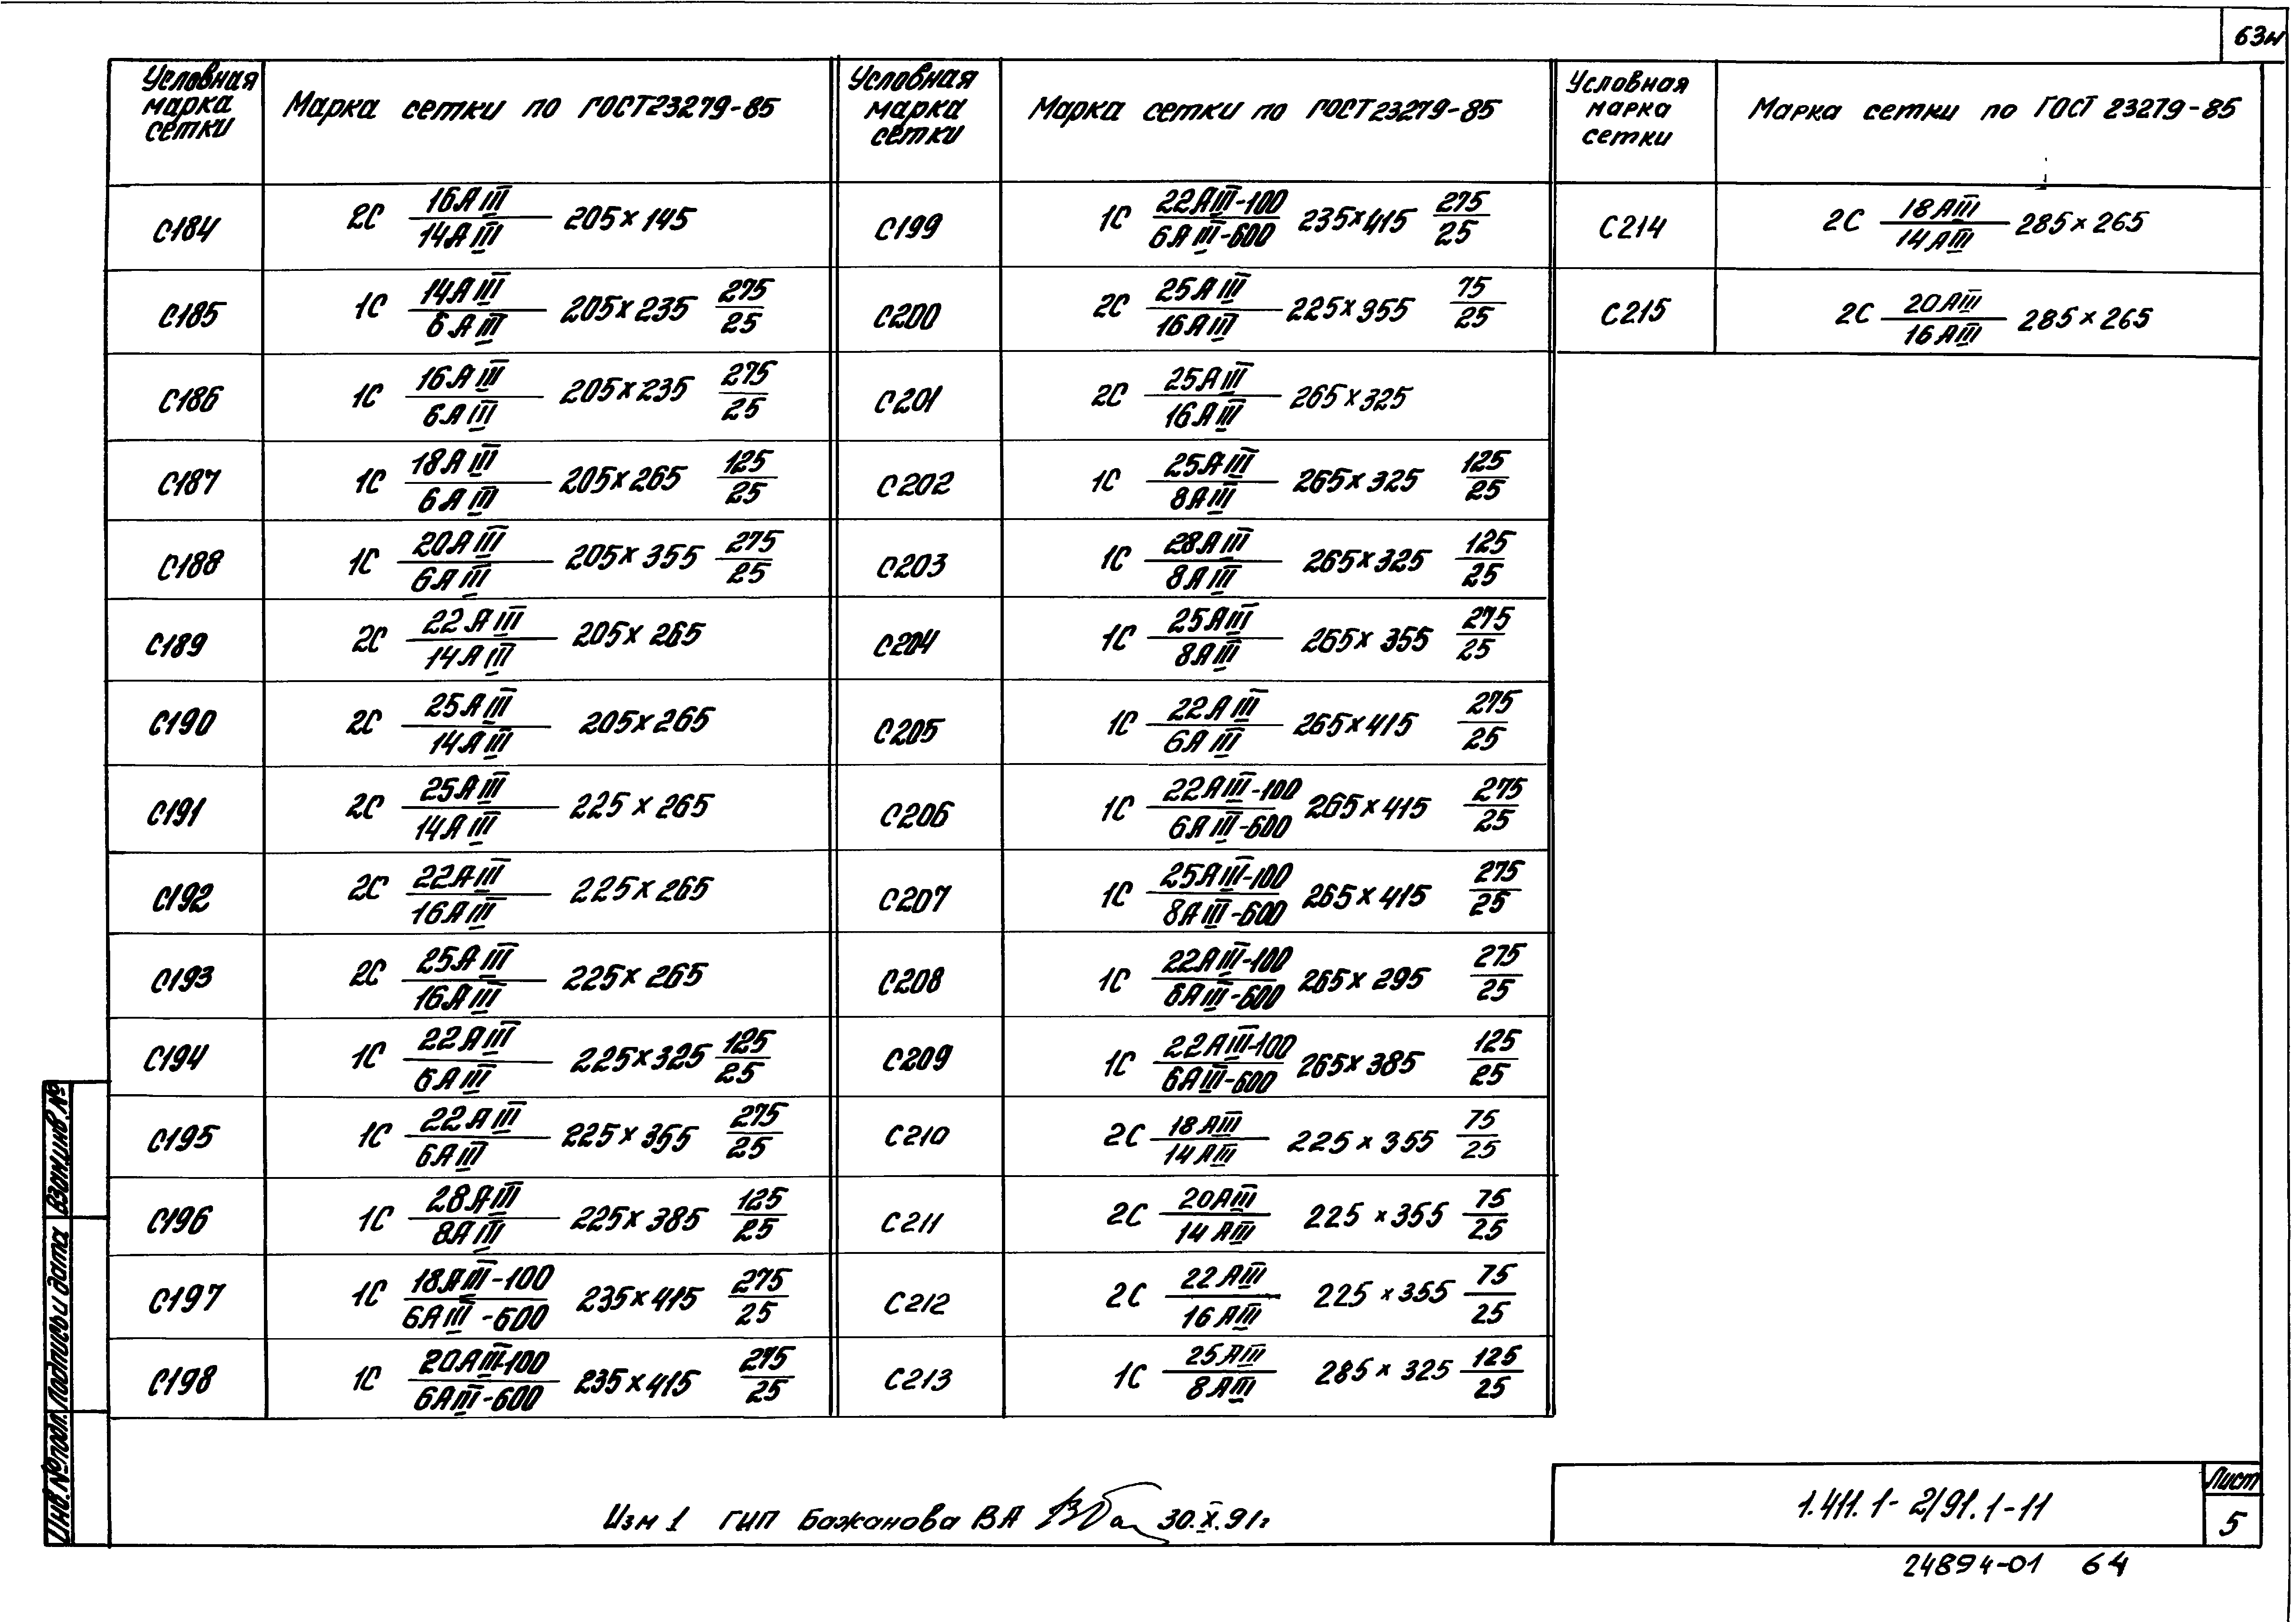 63н
Условная марка сетки | Марка сетки по ГОСТ 23279-85
С184 | 2С 16АIII/14АIII 205×145
С185 | 1С 14АIII/6АIII 205×235 275/25
С186 | 1С 16АIII/6АIII 205×235 275/25
С187 | 1С 18АIII/6АIII 205×265 125/25
С188 | 1С 20АIII/6АIII 205×355 275/25
С189 | 2С 22АIII/14АIII 205×265
С190 | 2С 25АIII/14АIII 205×265
С191 | 2С 25АIII/14АIII 225×265
С192 | 2С 22АIII/16АIII 225×265
С193 | 2С 25АIII/16АIII 225×265
С194 | 1С 22АIII/6АIII 225×325 125/25
С195 | 1С 22АIII/6АIII 225×355 275/25
С196 | 1С 28АIII/8АIII 225×385 125/25
С197 | 1С 18АIII-100/6АIII-600 235×415 275/25
С198 | 1С 20АIII-100/6АIII-600 235×415 275/25
Условная марка сетки | Марка сетки по ГОСТ 23279-85
С199 | 1С 22АIII-100/6АIII-600 235×415 275/25
С200 | 2С 25АIII/16АIII 225×355 75/25
С201 | 2С 25АIII/16АIII 265×325
С202 | 1С 25АIII/8АIII 265×325 125/25
С203 | 1С 28АIII/8АIII 265×325 125/25
С204 | 1С 25АIII/8АIII 265×355 275/25
С205 | 1С 22АIII/6АIII 265×415 275/25
С206 | 1С 22АIII-100/6АIII-600 265×415 275/25
С207 | 1С 25АIII-100/8АIII-600 265×415 275/25
С208 | 1С 22АIII-100/6АIII-600 265×295 275/25
С209 | 1С 22АIII-100/6АIII-600 265×385 125/25
С210 | 2С 18АIII/14АIII 225×355 75/25
С211 | 2С 20АIII/14АIII 225×355 75/25
С212 | 2С 22АIII/16АIII 225×355 75/25
С213 | 1С 25АIII/8АIII 285×325 125/25
Условная марка сетки | Марка сетки по ГОСТ 23279-85
С214 | 2С 18АIII/14АIII 285×265
С215 | 2С 20АIII/16АIII 285×265
Инв.№подл. Подпись и дата Взам.инв.№
Изм 1 ГИП Бажанова В А 30.X.91г
1.411.1-2/91.1-11
Лист
5
24894-01 64